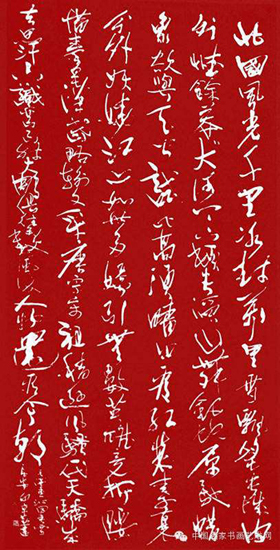 北國風光千里冰封萬里雪飄望長城內
外惟餘莽莽大河上下頓失滔滔山舞銀蛇原馳蠟
象欲與天公試比高須晴日看紅裝素裹
分外妖嬈江山如此多嬌引無數英雄競折腰
惜秦皇漢武略輸文采唐宗宋祖稍遜風騷一代天驕成
吉思汗只識彎弓射大雕俱往矣數風流人物還看今朝